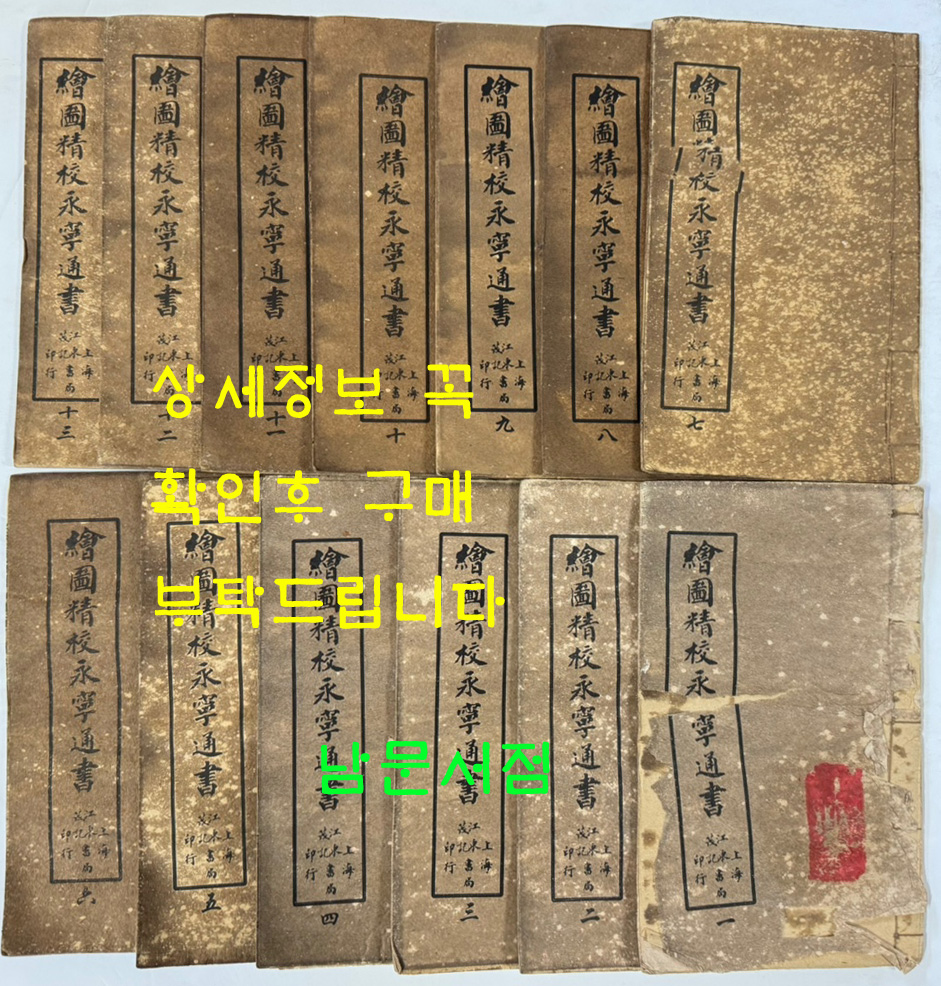 繪圖精校永寧通書
上海江東茂記書局印行
十三
繪圖精校永寧通書
上海江東茂記書局印行
十二
繪圖精校永寧通書
上海江東茂記書局印行
十一
繪圖精校永寧通書
上海江東茂記書局印行
十
繪圖精校永寧通書
上海江東茂記書局印行
九
繪圖精校永寧通書
上海江東茂記書局印行
八
繪圖精校永寧通書
上海江東茂記書局印行
七
상세정보 꼭
확인후 구매
부탁드립니다
繪圖精校永寧通書
上海江東茂記書局印行
六
繪圖精校永寧通書
上海江東茂記書局印行
五
繪圖精校永寧通書
上海江東茂記書局印行
四
繪圖精校永寧通書
上海江東茂記書局印行
三
繪圖精校永寧通書
上海江東茂記書局印行
二
繪圖精校永寧通書
上海江東茂記書局印行
一
남문서점